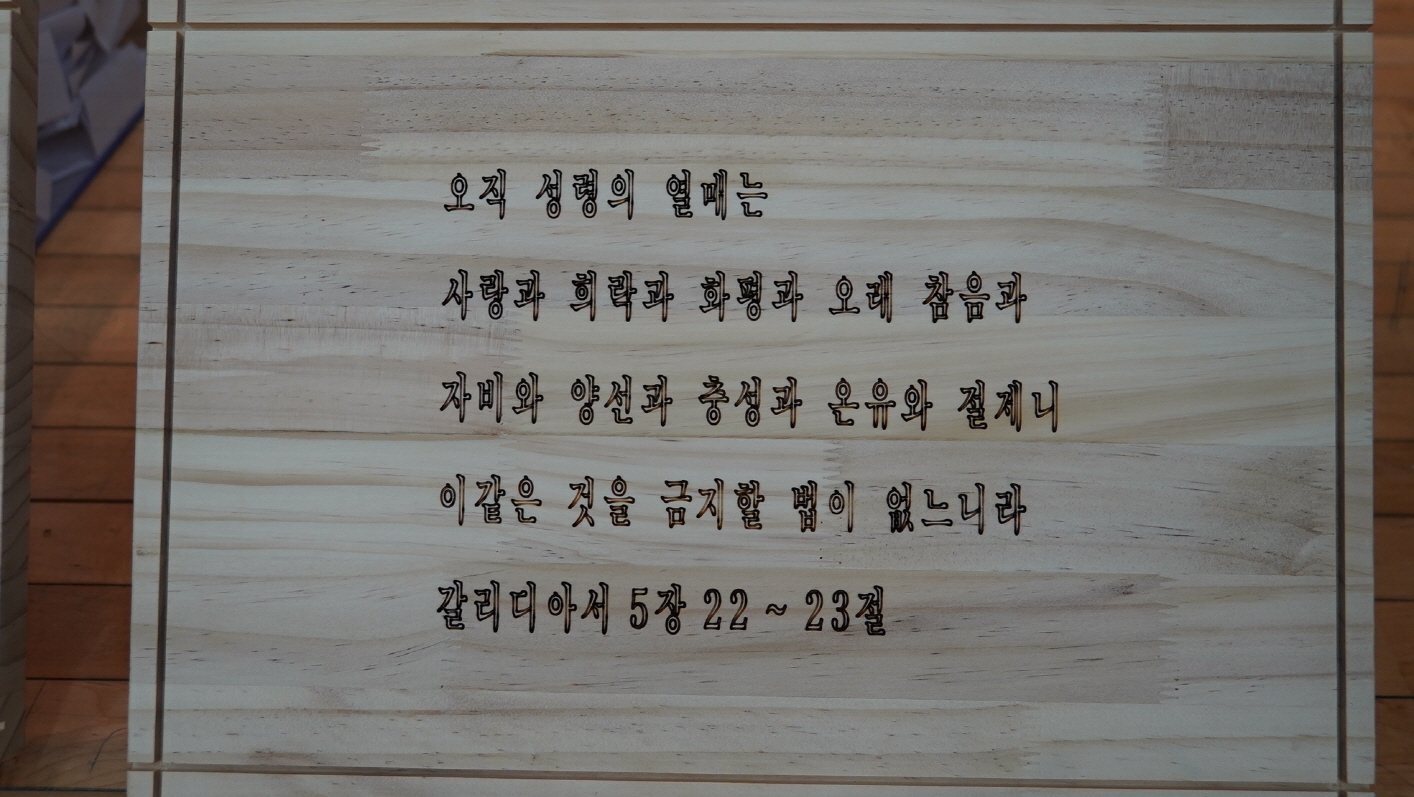 오직 성령의 열매는
사랑과 희락과 화평과 오래 참음과
자비와 양선과 충성과 온유와 절제니
이같은 것을 금지할 법이 없느니라
갈리디아서 5장 22 ~ 23절